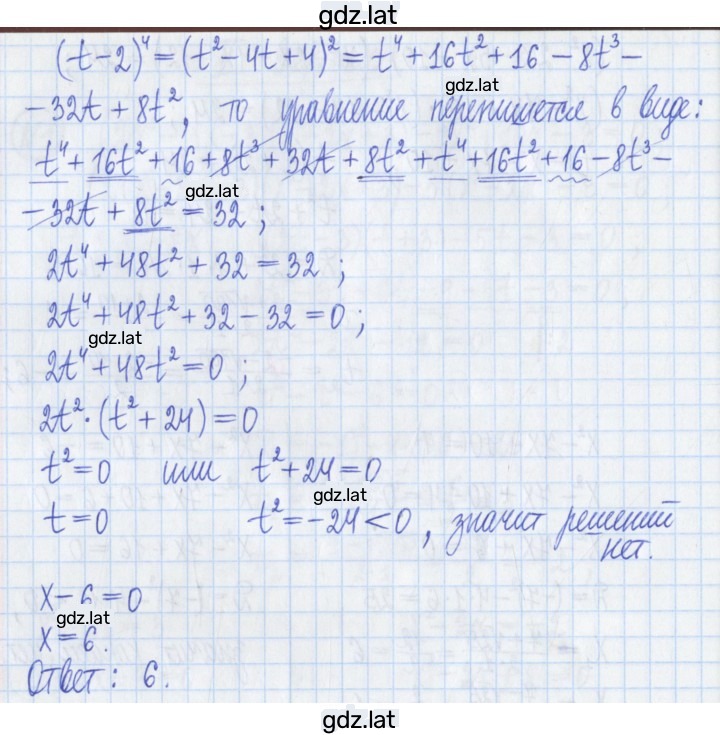 gdz.lat
(t-2)⁴ = (t² - 4t + 4)² = t⁴ + 16t² + 16 - 8t³ -
gdz.lat
- 32t + 8t², то уравнение перепишется в виде:
t⁴ + 16t² + 16 + 8t³ + 32t + 8t² + t⁴ + 16t² + 16 - 8t³ -
gdz.lat
- 32t + 8t² = 32;
2t⁴ + 48t² + 32 = 32;
2t⁴ + 48t² + 32 - 32 = 0;
gdz.lat
2t⁴ + 48t² = 0;
2t² · (t² + 24) = 0
t² = 0 или t² + 24 = 0
gdz.lat
t = 0 t² = -24 < 0, значит решений
нет.
x - 6 = 0
gdz.lat
x = 6.
Ответ: 6.
gdz.lat